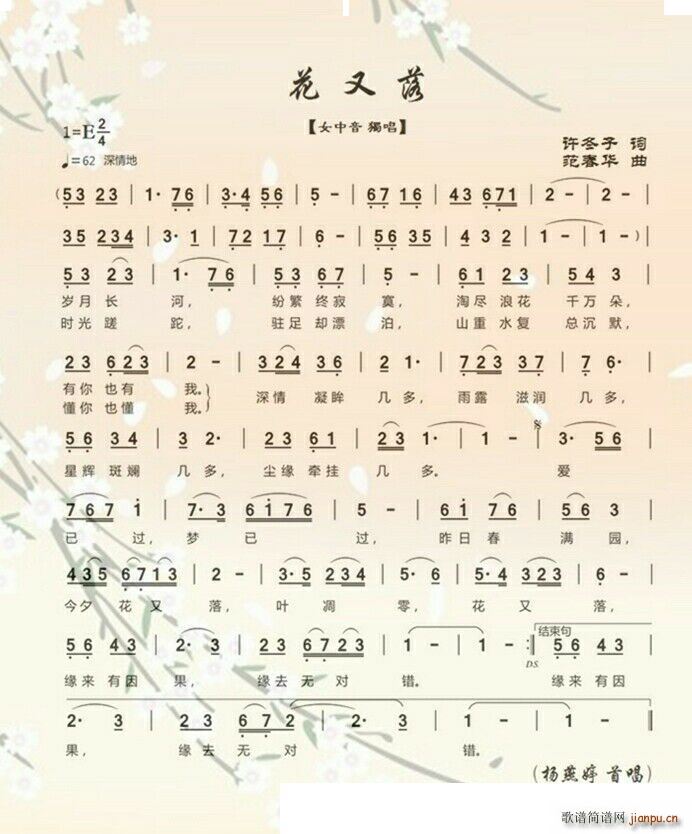 花又落
【女中音 獨唱】
1=E 2/4
♩=62 深情地
许冬子 词
范春华 曲
(53 23 | 1· 76 | 3·4 56 | 5 - | 67 16 | 43 671 | 2 - | 2 - |
35 234 | 3· 1 | 72 17 | 6 - | 56 35 | 4 3 2 | 1 - | 1 - ) |
53 23 | 1· 76 | 53 67 | 5 - | 61 23 | 5 4 5 |
岁月长 河, 纷繁终寂 寞, 淘尽浪花 千万朵,
时光蹉 跎, 驻足却漂 泊, 山重水复 总沉默,
23 623 | 2 - | 324 36 | 2 2· | 723 37 | 7 6· |
有你也有 我。 深情 凝眸 几多, 雨露 滋润 几多,
懂你也懂 我。
56 34 | 3 2· | 23 61 | 23 1· | 1 - | 5 6 |
星辉斑斓 几多, 尘缘牵挂 几多。 爱
767 i | 7· 3 | 6i76 5 | 6i 76 | 5 6 7 |
已过, 梦已过, 昨日春 满园,
435 6713 | 2 - | 3·5 223 | 5· 5 | 3·4 323 | 2 - |
今夕花又 落, 叶凋 零, 花又落,
56 43 | 2· 3 | 23 6723 | 1 - | 1 - :‖ 结束句 56 43 |
D.S.
缘来有因 果, 缘去无对 错。 缘来有因
2· 3 | 23 672 | 2· 3 | 1 - | 1 - ‖
果, 缘去无对 错。
(杨燕婷 首唱)
歌谱简谱网
jianpu.cn